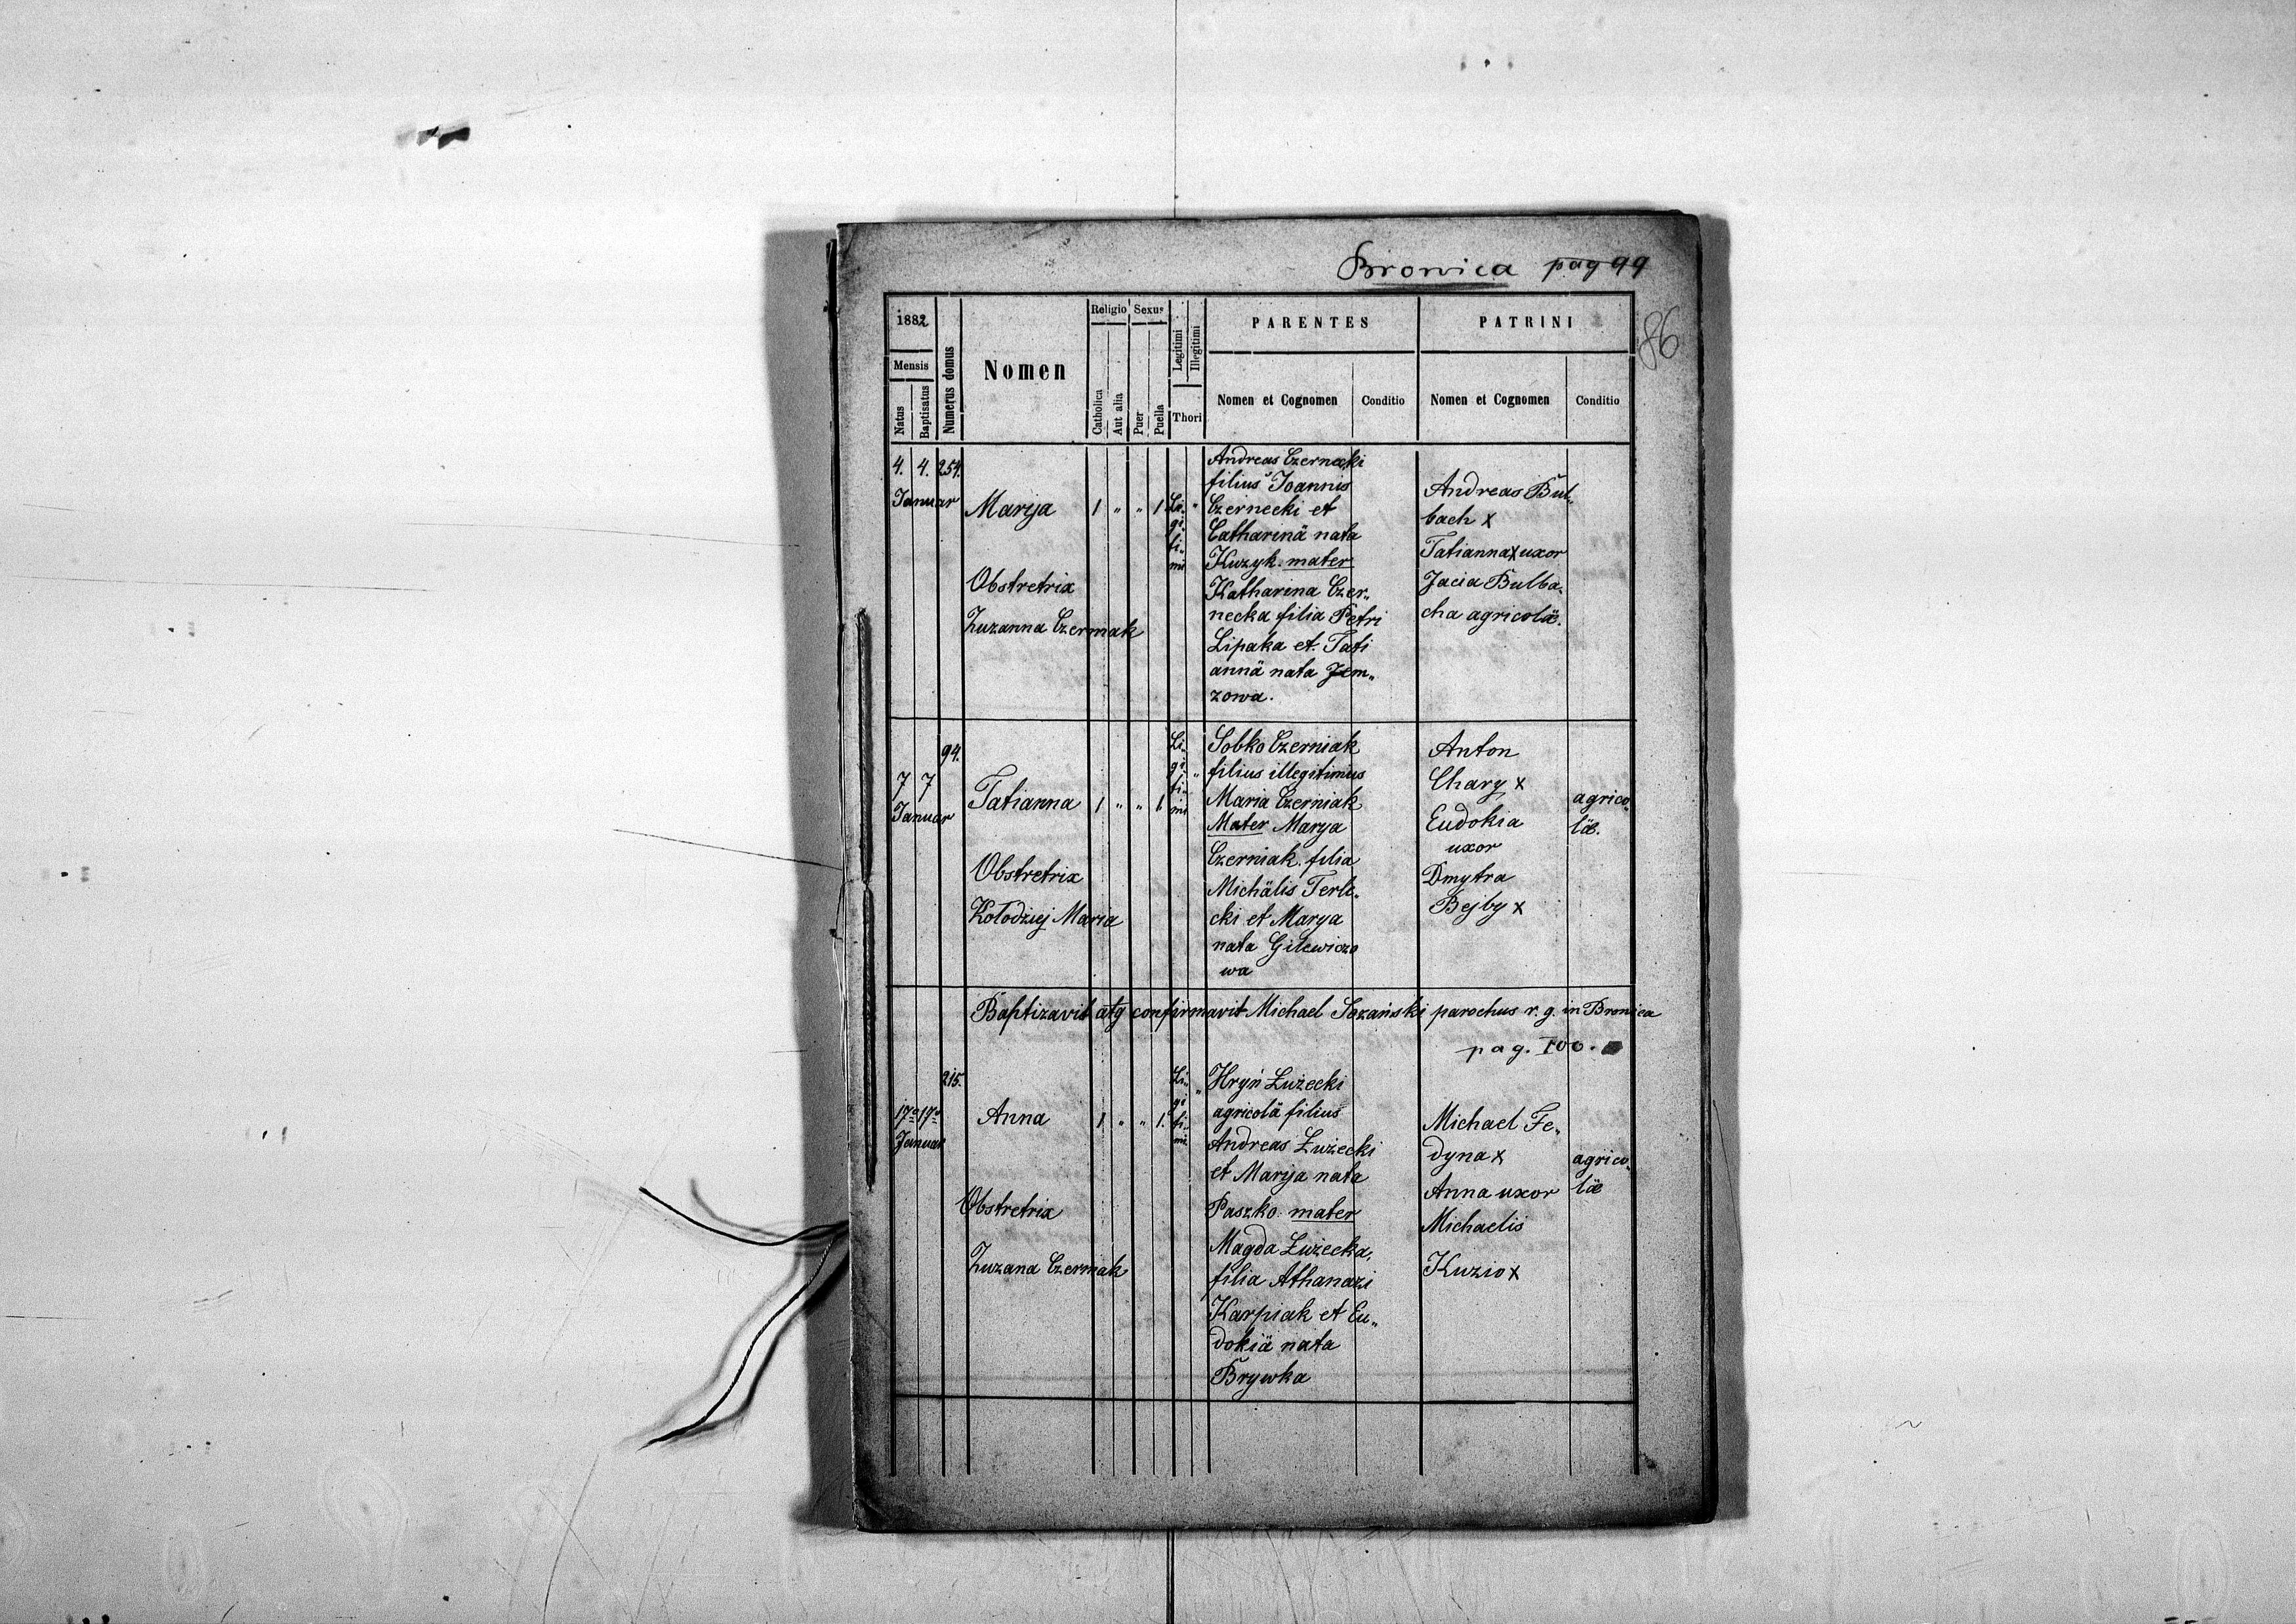 Bronica pag 99
86
1882
Mensis
Natus
Baptisatus
Numerus domus
Nomen
Religio
Catholica
Aut alia
Sexus
Puer
Puella
Legitimi
Illegitimi
Thori
PARENTES
Nomen et Cognomen
Conditio
PATRINI
Nomen et Cognomen
Conditio
4. 4. 254.
Januar
Marija
1 " " 1 Li-
gi-
ti-
mi
"
Obstretrix
Zuzanna Czermak
Andreas Czernecki
filius Joannis
Czernecki et
Catharinä nata
Kuzyk. mater
Katharina Czer„
necka filia Petri
Lipaka et Tati
annä nata Jem„
zowa.
Andreas Bul„
bach x
Tatianna x uxor
Jacia Bulba„
cha agricolä.
94.
7 7
Januar
Tatianna
1 " " 1.
Li-
gi-
ti-
mi
"
Obstretrix
Kołodziej Maria
Sobko Czerniak
filius illegitimus
Maria Czerniak
Mater Marya
Czerniak. filia
Michälis Terle„
cki et Marya
nata Gilewiczo
wa
Anton
Chary x
Eudokia
uxor
Dmytra
Bejby x
agrico„
lä.
Baptizavit atq confirmavit Michael Sozański parochus r. g. in Bronica
pag. 100.
215.
17a 17a
Januar
Anna
1 " " 1.
Li-
gi
ti-
mi
"
Obstretrix
Zuzana Czermak
Hryń Łużecki
agricolä filius
Andreas Łużecki
et Marija nata
Paszko. mater
Magda Łużecka,
filia Athanazi
Karpiak et Eu„
dokiä nata
Brywka
Michael Fe„
dyna x
Anna uxor
Michaelis
Kuzio x
agrico„
lä